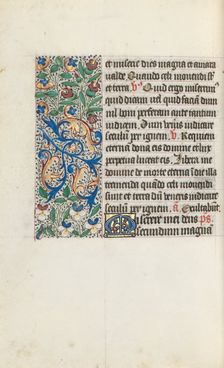 et miserie dies magna et amara
valde Quando celi movendi st
et terra. v̕ Quid ergo miserrim⁹
quid dicam vel quid faciā dum
nil boni perferam ante tantum
iudicem. Dum veneris iudicare
seculū per ignem. v̕. Requiem
eternā dona eis domine et lux
perpetua luceat eis. Libera me
domine de morte eterna ī die illa
tremenda quādo celi movendi
sunt et terra dū veneris iudicare
seculū per ignem. ā. Exultabūt
Miserere mei deus ps.
secundum magnā